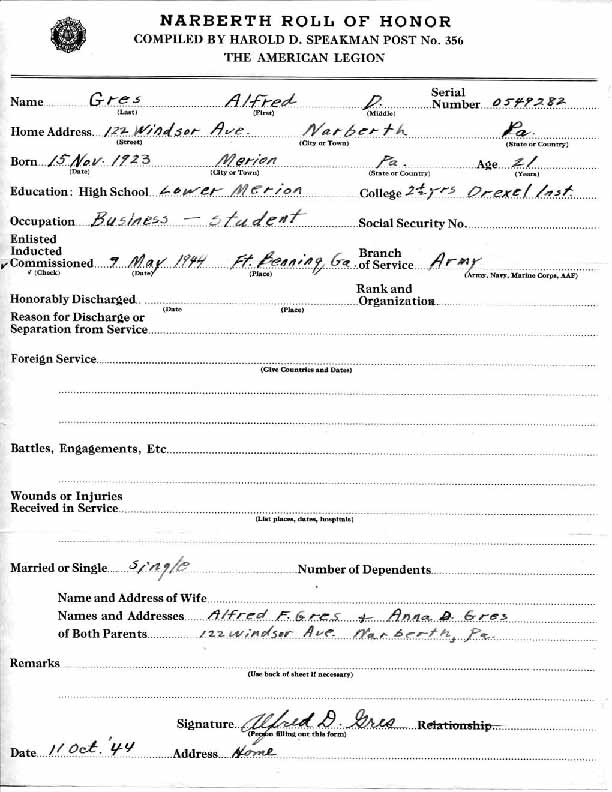 NARBERTH ROLL OF HONOR
COMPILED BY HAROLD D. SPEAKMAN POST No. 356
THE AMERICAN LEGION
Name Gres Alfred D. Serial Number 0549282
(Last) (First) (Middle)
Home Address 122 Windsor Ave. Narberth Pa.
(Street) (City or Town) (State or Country)
Born 15 Nov. 1923 Merion Pa. Age 21
(Date) (City or Town) (State or Country) (Years)
Education: High School Lower Merion College 2½ yrs Drexel Inst.
Occupation Business – Student Social Security No.
Enlisted
Inducted Branch
✓ Commissioned 9 May 1944 Ft. Benning, Ga of Service Army
√ (Check) (Date) (Place) (Army, Navy, Marine Corps, AAF)
Honorably Discharged Rank and Organization
(Date (Place)
Reason for Discharge or
Separation from Service
Foreign Service
(Give Countries and Dates)
Battles, Engagements, Etc.
Wounds or Injuries
Received in Service
(List places, dates, hospitals)
Married or Single single Number of Dependents
Name and Address of Wife
Names and Addresses Alfred F. Gres + Anna D. Gres
of Both Parents 122 Windsor Ave. Narberth, Pa.
Remarks
(Use back of sheet if necessary)
Signature Alfred D. Gres Relationship
(Person filling out this form)
Date 11 Oct. '44 Address Home